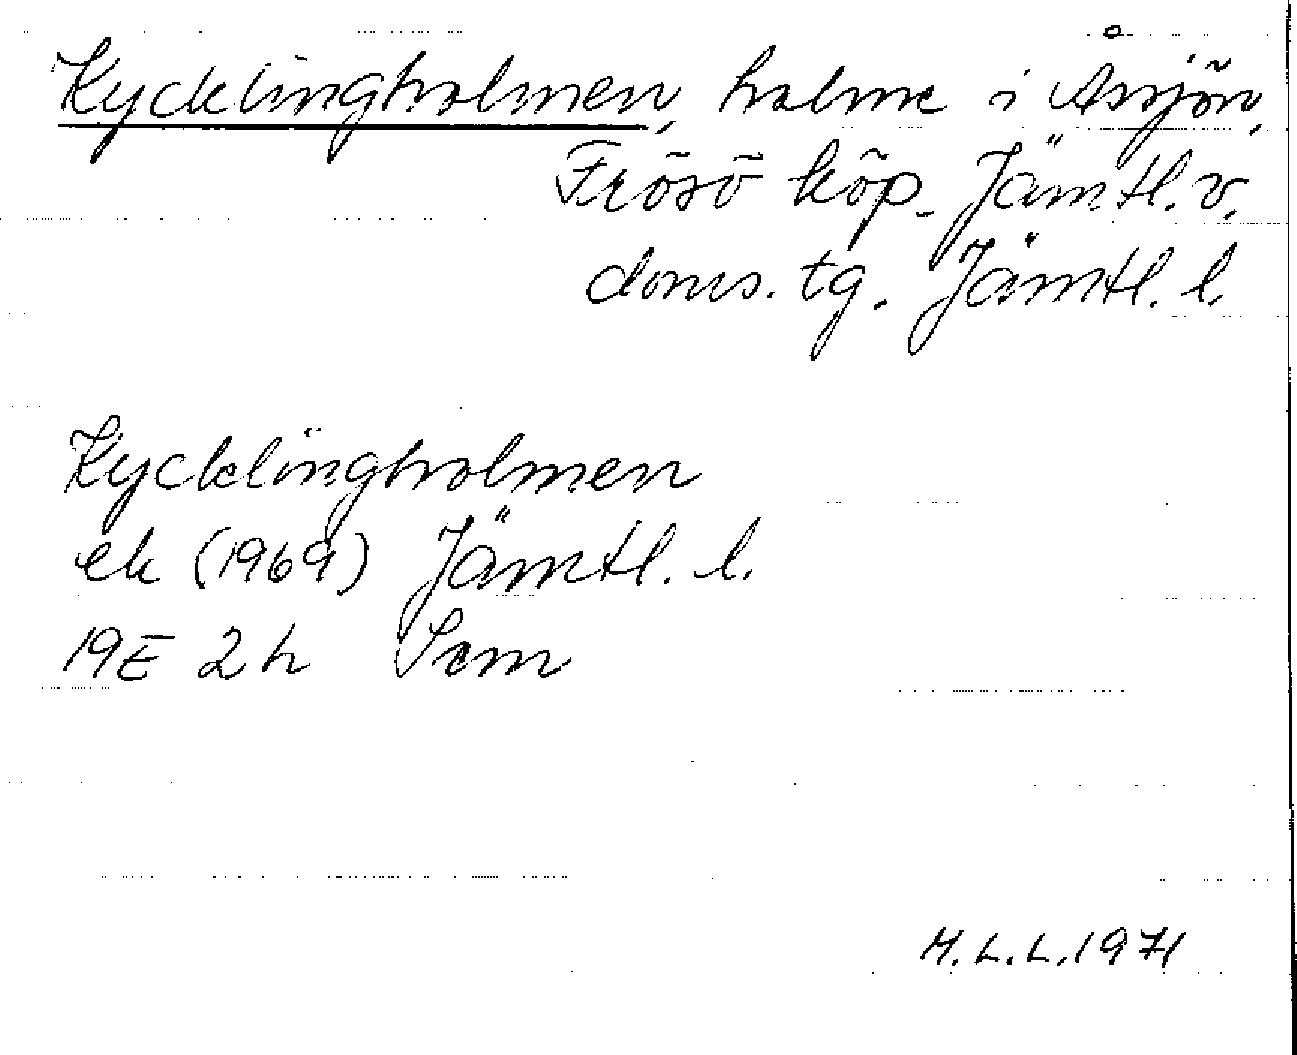 Kycklingholmen, holme i Åssjön,
Frösö köp. Jämtl. v.
doms. tg. Jämtl. l.
Kycklingholmen
ek (1969) Jämtl. l.
19E 2h
M.L.L. 1971